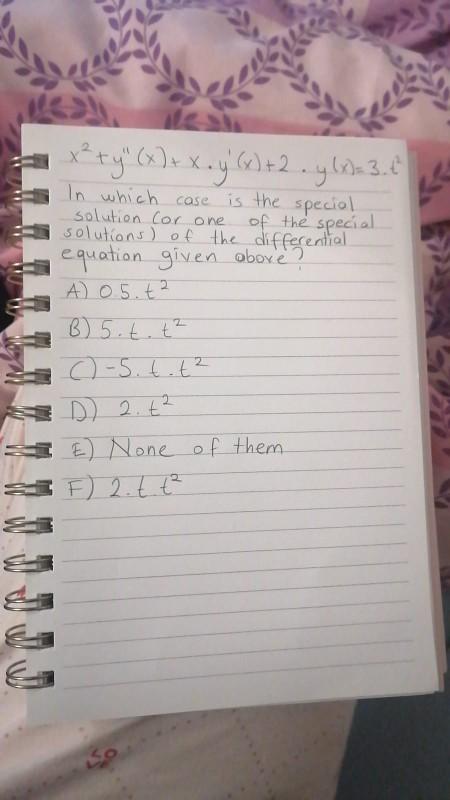 x² + y"(x) + x . y'(x) + 2 . y(x) = 3 . t²
In which case is the special
solution (or one of the special
solutions) of the differential
equation given above?
A) 0.5 . t²
B) 5 . t . t²
C) -5 . t . t²
D) 2 . t²
E) None of them
F) 2 . t . t²